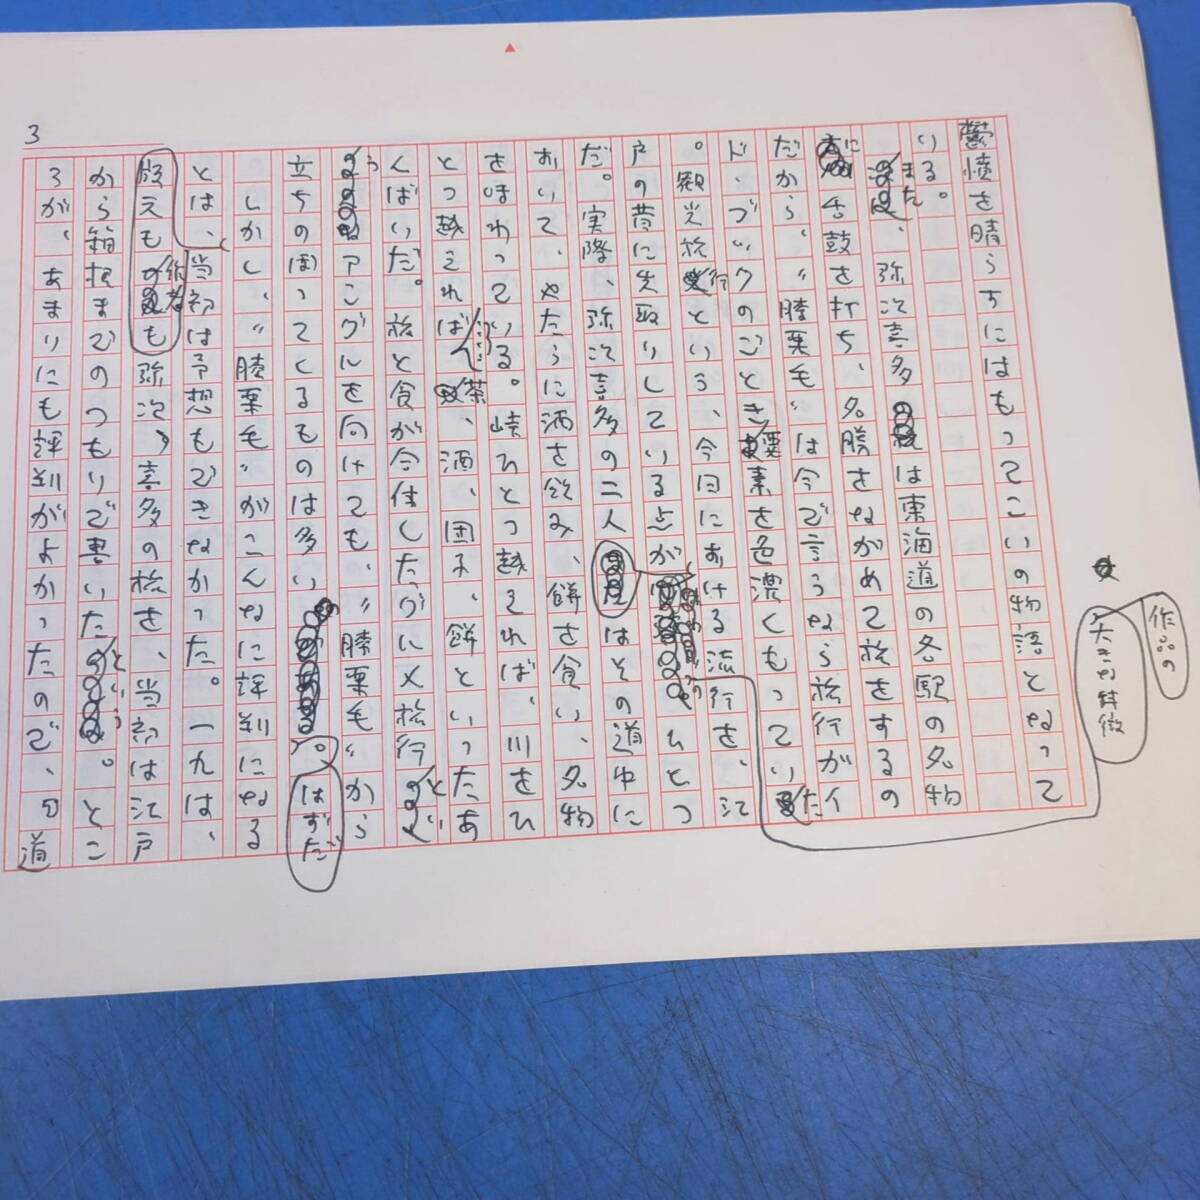 3
鬱憤を晴らすにはもってこいの物語となって
いる。
また、弥次喜多は東海道の各駅の名物
に舌鼓を打ち、名勝をながめて旅をするの
だから、〝膝栗毛〟は今で言うなら旅行ガイ
ド・ブックのごとき要素を色濃くもっていた
。観光旅行という、今日における流行を、江
戸の昔に先取りしている点がひとつ
作品の
大きな特徴
だ。実際、弥次喜多の二人はその道中に
おいて、やたらに酒を飲み、餅を食い、名物
をほおばっている。峠ひとつ越えれば、川をひ
とつ越えれば茶、酒、団子、餅といったあ
んばいだ。旅と食が合体したグルメ旅行とい
うアングルを向けても、〝膝栗毛〟から
立ちのぼってくるものは多いはずだ。
しかし、〝膝栗毛〟がこんなに評判になる
とは、当初は予想もできなかった。一九は、
版元も作者も弥次、喜多の旅を、当初は江戸
から箱根までのつもりで書いたという。とこ
ろが、あまりにも評判がよかったので、道